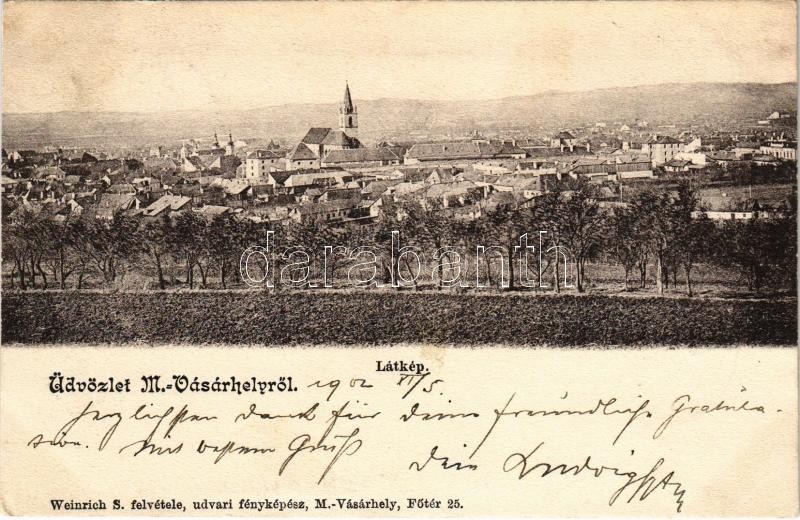 darabanth
Látkép.
Üdvözlet M.-Vásárhelyről. 1902 XI/5.
Herzlichsten Dank für Deine freundliche Gratula-
tion. Mit bestem Gruß Dein Ludwig
Weinrich S. felvétele, udvari fényképész, M.-Vásárhely, Főtér 25.